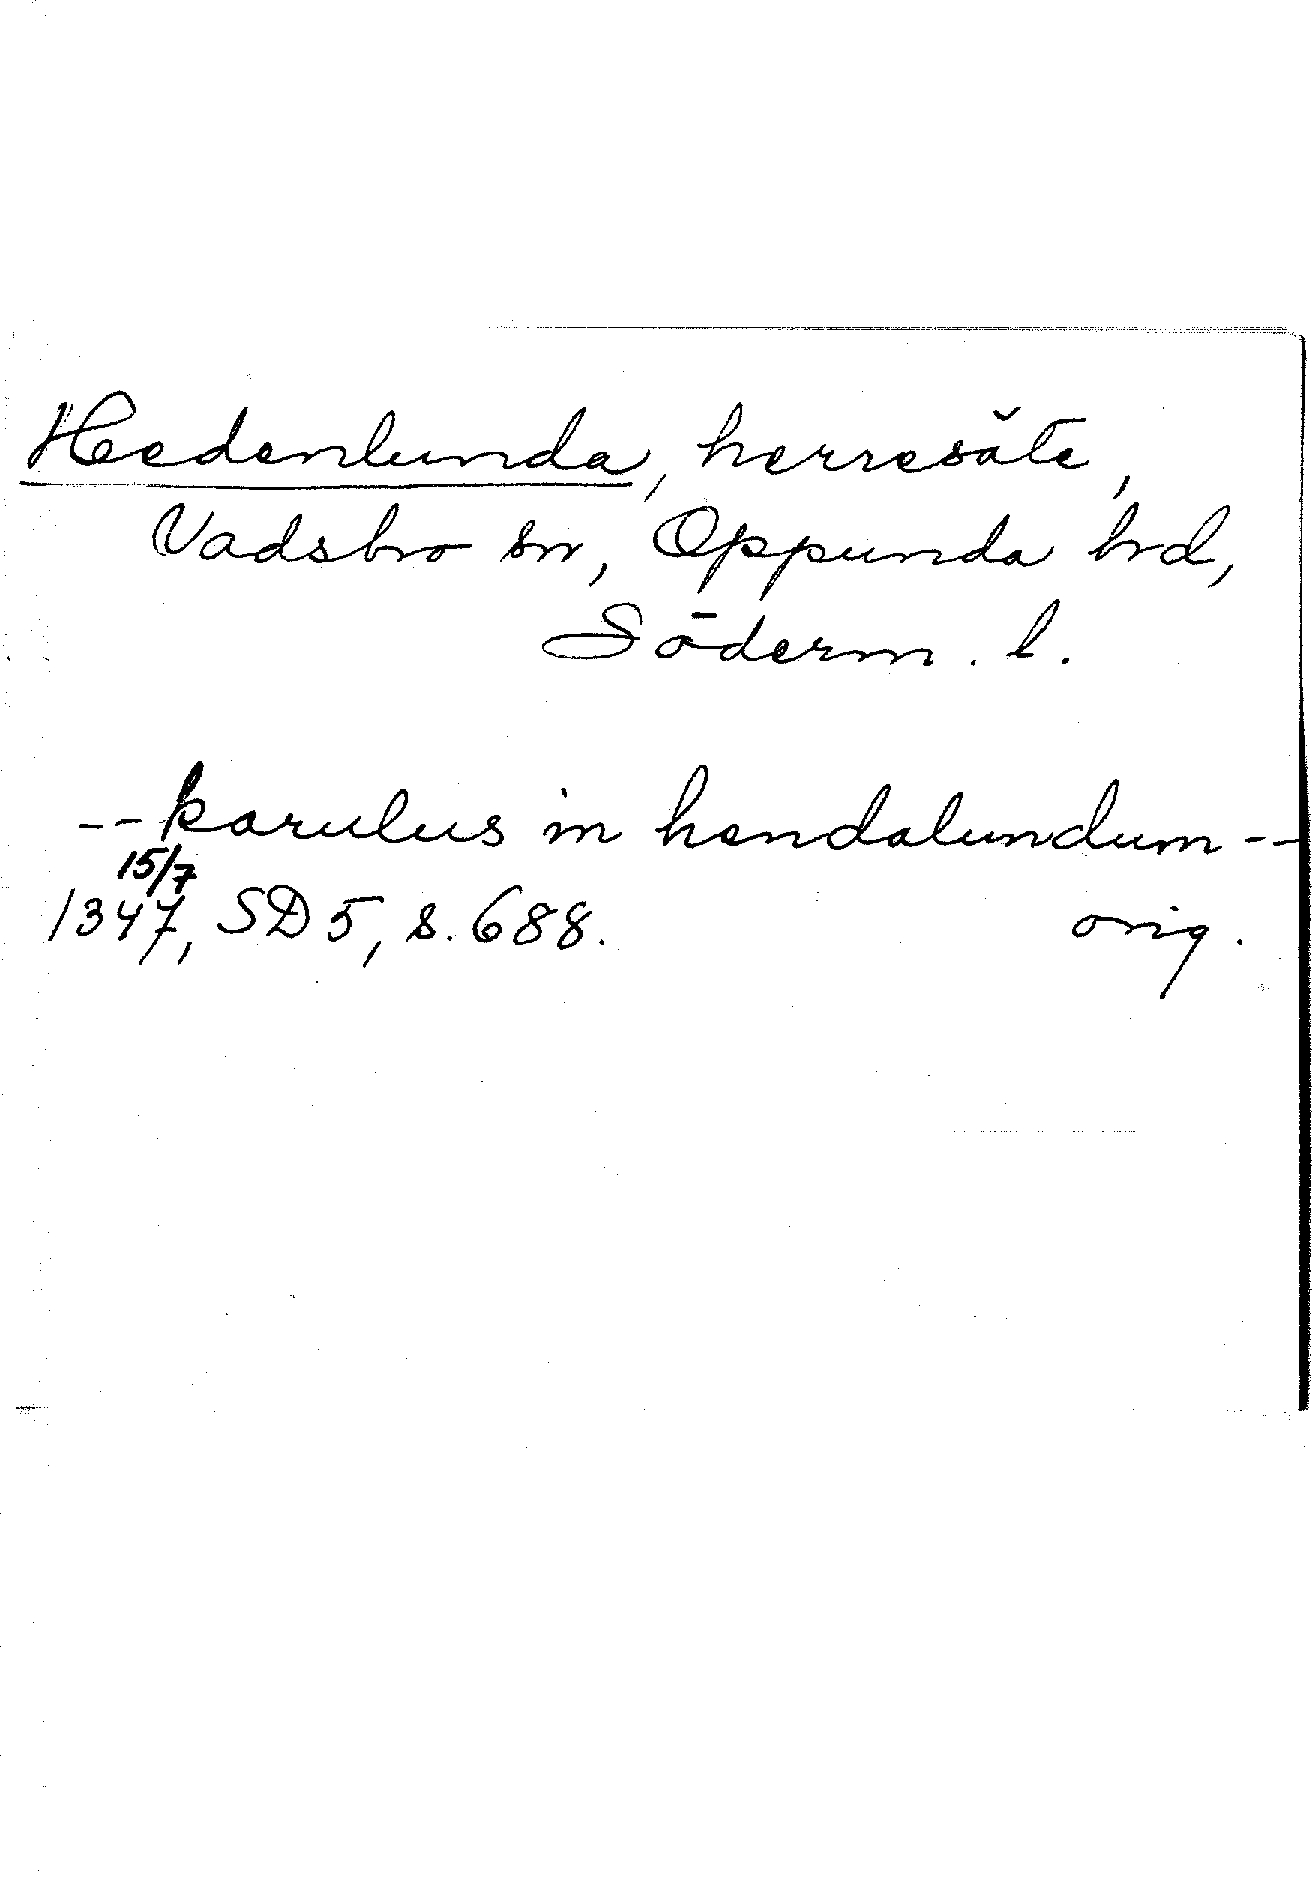 Hedenlunda, herresäte,
Vadsbro sn, Oppunda hrd,
Söderm. l.
-- karulus in hendalundum --
15/7
1347, SD 5, s. 688. orig.